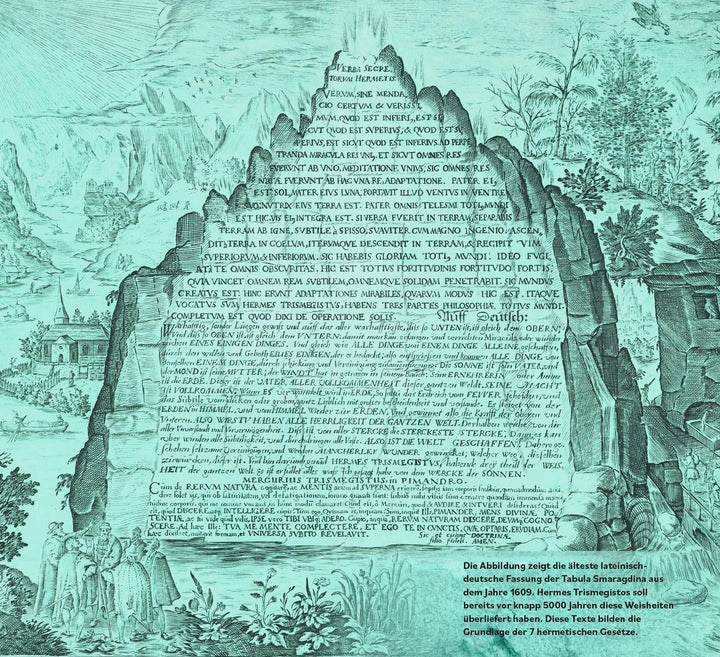 VERBA SECRE
TORUM HERMETIS.
VERUM, SINE MENDA,
CIO CERTUM & VERISSI
MUM, QUOD EST INFERI, EST SI,
CUT QUOD EST SUPERIUS; & QUOD EST SU,
PERIUS, EST SICUT QUOD EST INFERIUS. AD PERPE
TRANDA MIRACULA REI UNI, ET SICUT OMNES RES
FUERUNT AB UNO, MEDITATIONE UNIUS, SIC OMNES RES
NATÆ FUERUNT AB HAC UNA RE, ADAPTATIONE. PATER EI,
EST SOL, MATER EIUS LUNA, PORTAVIT ILLUD VENTUS IN VENTRE
SUO, NUTRIX EIUS TERRA EST. PATER OMNIS TELESMI TOTI, MUNDI
EST HIC. VIS EI, INTEGRA EST. SI VERSA FUERIT IN TERRAM, SEPARABIS
TERRAM AB IGNE, SUBTILE à SPISSO, SUAVITER CUM MAGNO INGENIO. ASCEN,
DIT à TERRA IN COELUM, ITERUMQUE DESCENDIT IN TERRAM, & RECIPIT VIM
SUPERIORUM & INFERIORUM. SIC HABEBIS GLORIAM TOTI, MUNDI. IDEO FUGI,
AT à TE OMNIS OBSCURITAS. HIC EST TOTIUS FORTITUDINIS FORTITUDO FORTIS;
QUIA VINCET OMNEM REM SUBTILEM, OMNEMQUE SOLIDAM PENETRABIT. SIC MUNDUS
CREATUS EST. HINC ERUNT ADAPTATIONES MIRABILES, QUARUM MODUS HIC EST. ITAQUE
VOCATUS SUM HERMES TRISMEGISTUS, HABENS TRES PARTES PHILOSOPHIÆ TOTIUS MUNDI.
COMPLETUM EST QUOD DIXI DE OPERATIONE SOLIS. Auff Deutsch:
Warhafftig, sonder Liegen gewiß und auff das aller warhafftigste, dis so UNTEN ist, ist gleich dem OBERN;
Und dis so OBEN ist, ist gleich dem UNTERN: damit man kan erlangen und verrichten Miracula oder wunder
zeichen EINES EINIGEN DINGES. Und gleich wie ALLE DINGE von EINEM DINGE ALLEINE geschaffen,
durch den willen und Geboth EINES EINIGEN, der es bedacht; also entspriessen und kommen ALLE DINGE von
demselben EINEM DINGE, durch schickung und Vereinigung. DIE SONNE ist sein VATER, und
der MOND ist seine MUTTER; der WINDT hat in getragen in seinem Bauch. Sein ERNEHRERIN oder Amme
ist die ERDE. Dieser ist der VATER ALLER VOLLKOMMENHEIT dieser gantzen Welt. SEINE MACHT
IST VOLLKOMMEN, Wann ES verwandelt wird in ERDE, So solstu das Erdreich vom FEWER scheiden, und
das Subtile vom dicken oder groben, gantz Lieblich mit grosser bescheidenheit und verstandt. Es steiget von der
ERDEN in HIMMEL, und vom HIMMEL Wieder zur ERDEN, Und gewinnet also die Krafft der Obern und
Untern. ALSO WIRSTU HABEN ALLE HERRLIGKEIT DER GANTZEN WELT. Derhalben weiche von dir
aller Unverstandt und Unvermögenheit. Diß ist von aller STERCKE die STERCKESTE STERCKE, Dann es kan
über winden alle Subtiligkeit, und durchdringen alle Veste. ALSO IST DIE WELT GESCHAFFEN. Dahero ge,
schehen seltzame Vereinigungen, und werden MANCHERLEY WUNDER gewircket, Welcher Weg,
Und bin darumb genant HERMES TRISMEGISTUS, habende drey theill der WEIS,
HEIT der gantzen Welt. Es ist erfüllet alles was Ich gesagt habe von dem WERCKE der SONNEN.
MERCURIUS TRISMEGISTUS IN PIMANDRO.
Cum de RERUM NATURA cogitarem, ac MENTIS aciem ad SUPERNA erigerem,
QUID est, ô Mercuri, quod & AUDIRE & INTUERI desideras? Quid
est, quod DISCERE atque INTELLIGERE cupis? Tum ego, Quisnam es, inquam? Sum, inquit ille, PIMANDER, MENS DIVINÆ PO,
TENTIÆ, ac tu vide quid velis, IPSE vero TIBI UBIQUE ADERO. Cupio, inqui, RERUM NATURAM DISCERE, DEUMQUE COGNO
SCERE. Ad hæc ille: TUA ME MENTE COMPLECTERE, ET EGO TE IN CUNCTIS, QUÆ OPTARIS, ERUDIAM. Cum
hæc dixisset, mutavit formam, et UNIVERSA SUBITO REVELAVIT.
DOCTRINÆ
filio fideli. AMEN.
Die Abbildung zeigt die älteste lateinisch-
deutsche Fassung der Tabula Smaragdina aus
dem Jahre 1609. Hermes Trismegistos soll
bereits vor knapp 5000 Jahren diese Weisheiten
überliefert haben. Diese Texte bilden die
Grundlage der 7 hermetischen Gesetze.